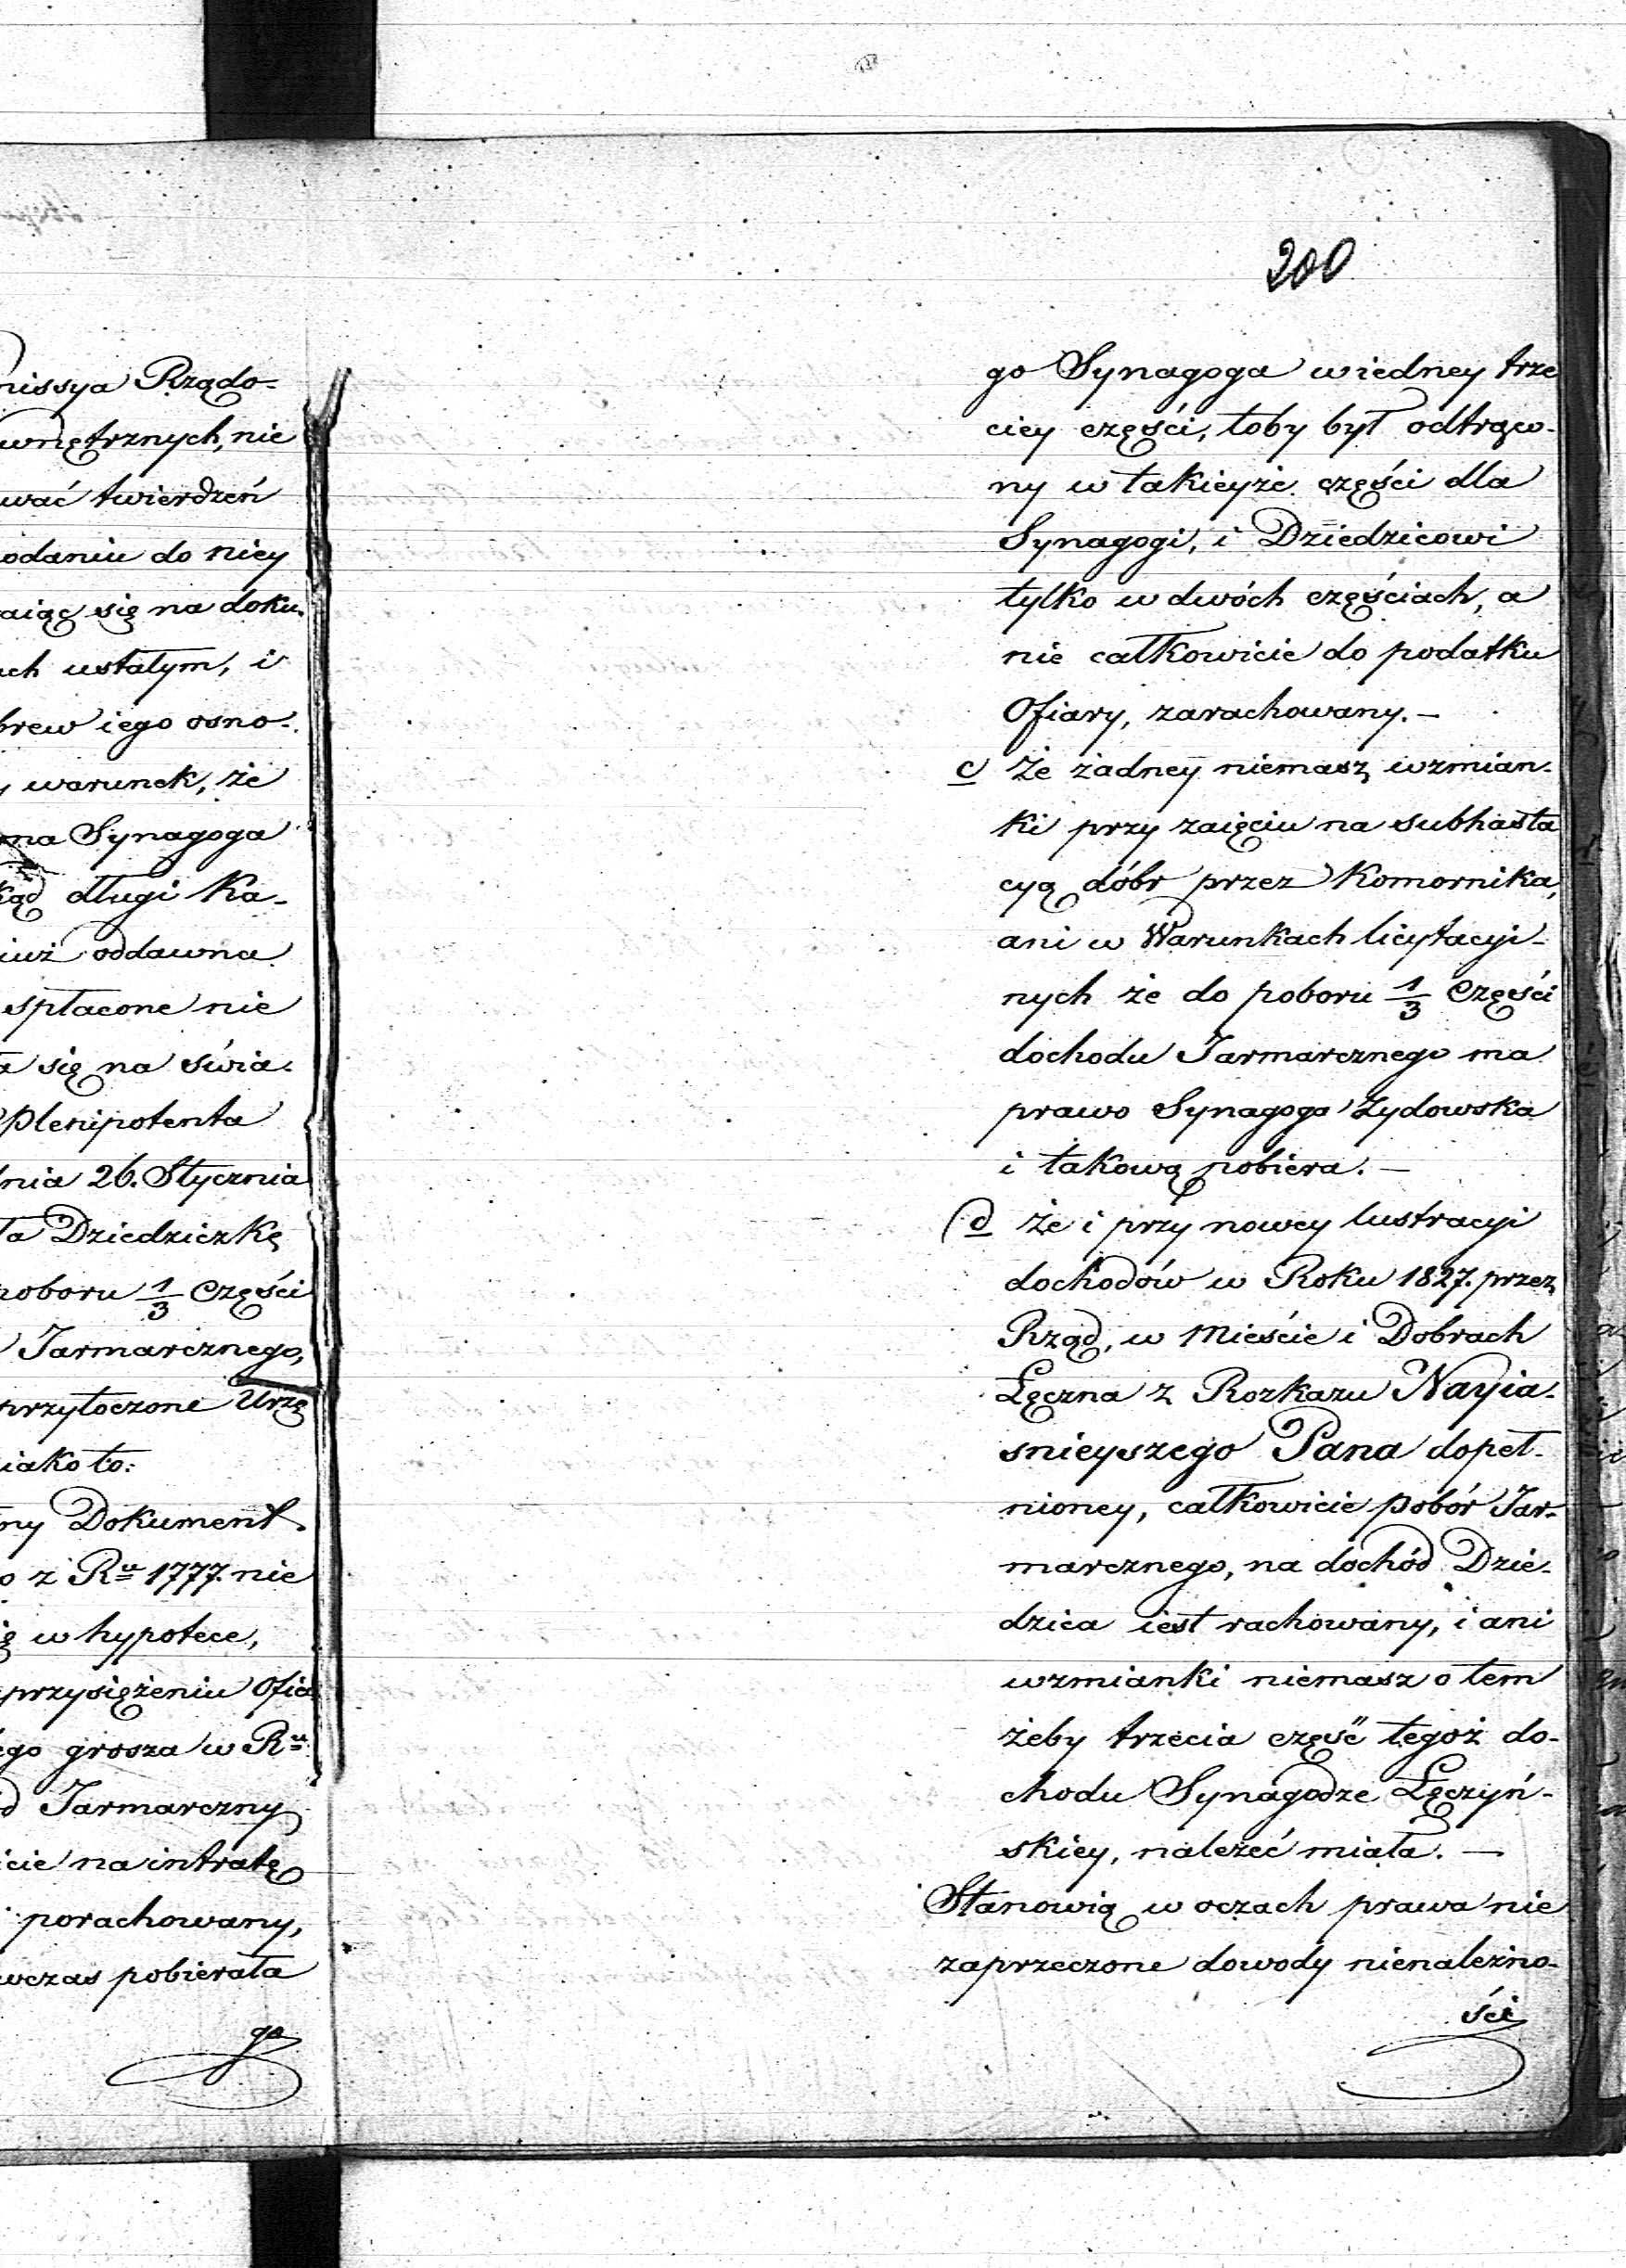 missya Rządo-
wnętrznych, nie
wać twierdzeń
odaniu do niey
aiąc się na doku-
ach ustałym, i
brew iego osno-
warunek, że
na Synagoga
kąd długi Ka-
iuż oddawna
spłacone nie
a się na świa-
Plenipotenta
dnia 26. Stycznia
ła Dziedziczkę
poboru 1/3 Części
Jarmarcznego,
przytoczone Urzę
iako to:
ny Dokument
o z Ru 1777. nie
ię w hypotece,
przysiężeniu Ofia
ego grosza w Ru
d Jarmarczny
icie na intratę
porachowany,
wczas pobierała
go
200
go Synagoga w iedney trze
ciey części, toby był odtrąco-
ny w takieyże części dla
Synagogi, i Dziedzicowi
tylko w dwóch częściach, a
nie całkowicie do podatku
Ofiary, zarachowany. —
c Że żadney niemasz wzmian-
ki przy zaięciu na subhasta
cyą dóbr przez Komornika,
ani w Warunkach licytacyi-
nych że do poboru 1/3 Części
dochodu Jarmarcznego ma
prawo Synagoga Żydowska
i takową pobiera. —
d Że i przy nowey lustracyi
dochodów w Roku 1827. przez
Rząd, w Mieście i Dobrach
Łęczna z Rozkazu Nayia-
snieyszego Pana dopeł-
nioney, całkowicie pobór Jar-
marcznego, na dochód Dzie-
dzica iest rachowany, i ani
wzmianki niemasz o tem
żeby trzecia część tegoż do-
chodu Synagodze Łęczyń-
skiey, należeć miała. —
Stanowią w oczach prawa nie
zaprzeczone dowody nienależno-
ści